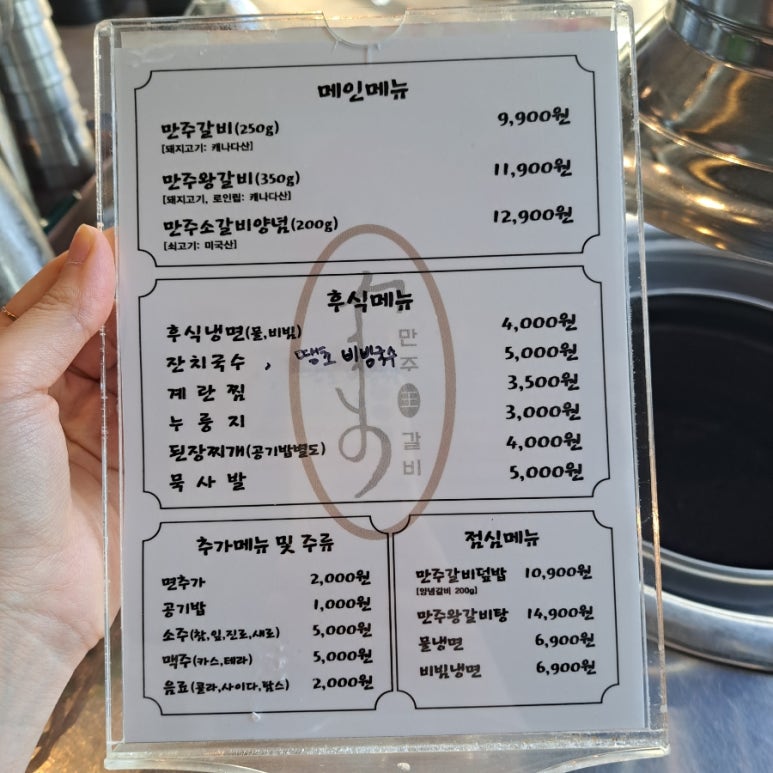 메인메뉴
만주갈비(250g) 9,900원
[돼지고기: 캐나다산]
만주왕갈비(350g) 11,900원
[돼지고기, 로인립: 캐나다산]
만주소갈비양념(200g) 12,900원
[쇠고기: 미국산]
후식메뉴
후식냉면(물,비빔) 4,000원
잔치국수, 땡초 비빔국수 5,000원
계란찜 3,500원
누룽지 3,000원
된장찌개(공기밥별도) 4,000원
묵사발 5,000원
만주
갈비
추가메뉴 및 주류
면추가 2,000원
공기밥 1,000원
소주(참,잎,진로,새로) 5,000원
맥주(카스,테라) 5,000원
음료(콜라,사이다,탐스) 2,000원
점심메뉴
만주갈비덮밥 10,900원
[양념갈비 200g]
만주왕갈비탕 14,900원
물냉면 6,900원
비빔냉면 6,900원